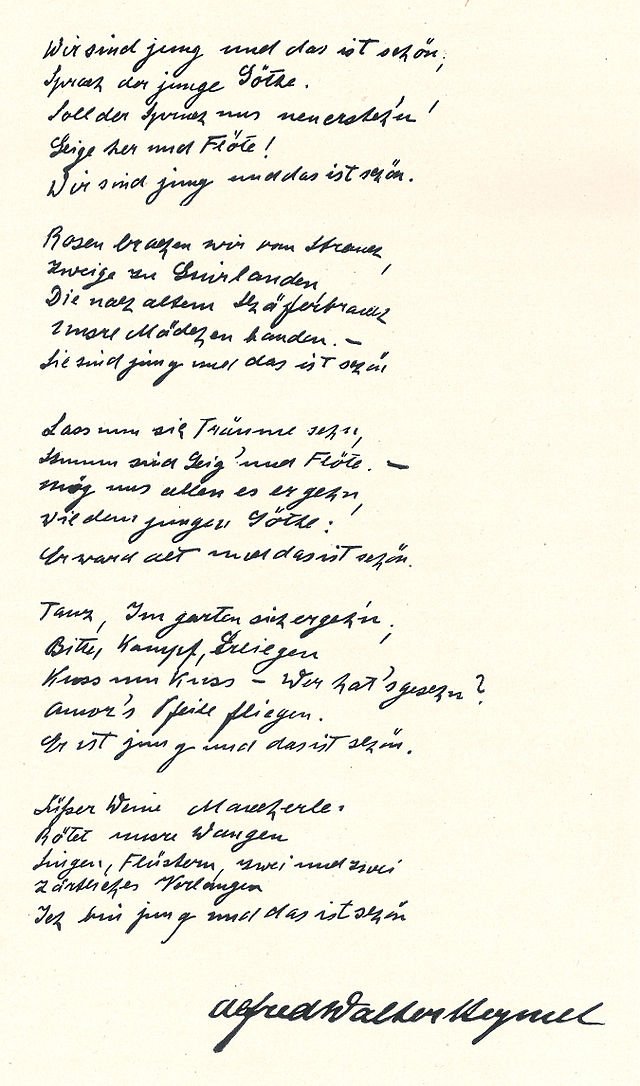 Wir sind jung und das ist schön,
Sprach der junge Göthe.
Soll der Spruch uns neu ersteh'n!
Geige her und Flöte!
Wir sind jung und das ist schön.
Rosen brachen wir vom Strauch,
Zweige zu Guirlanden
Die nach altem Schäferbrauch
Unsre Mädchen banden. —
Sie sind jung und das ist schön
Lass uns sich Träume sehn,
Stumm sind Geig' und Flöte. —
Mög uns allen es ergehn,
wie dem jungen Göthe:
Er ward alt und das ist schön.
Tanz, Im garten sich ergeh'n,
Bitte, Kampf, Kriegen
Kuss um Kuss — Wer hat's gesehn?
Amor's Pfeile fliegen.
Er ist jung und das ist schön.
Süßer Weine Mancherlei
Rötet unsre Wangen
Singen, Flüstern, zwei und zwei
Zärtliches Verlangen
Ich bin jung und das ist schön
Alfred Walter Heymel